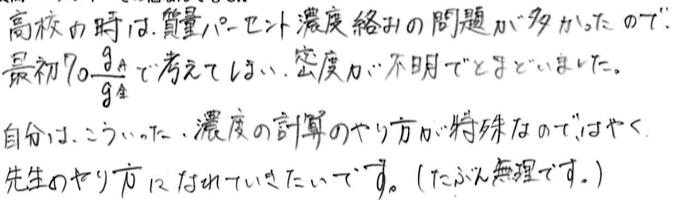 高校の時は、質量パーセント濃度絡みの問題が多かったので、
最初70 gA/g全 で考えてしまい、密度が不明でとまどいました。
自分は、こういった、濃度の計算のやり方が特殊なので、はやく
先生のやり方になれていきたいです。(たぶん無理です。)